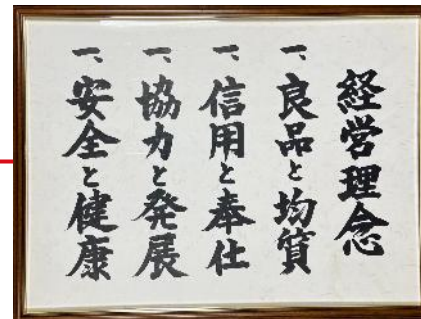 経営理念
一、良品と均質
一、信用と奉仕
一、協力と発展
一、安全と健康